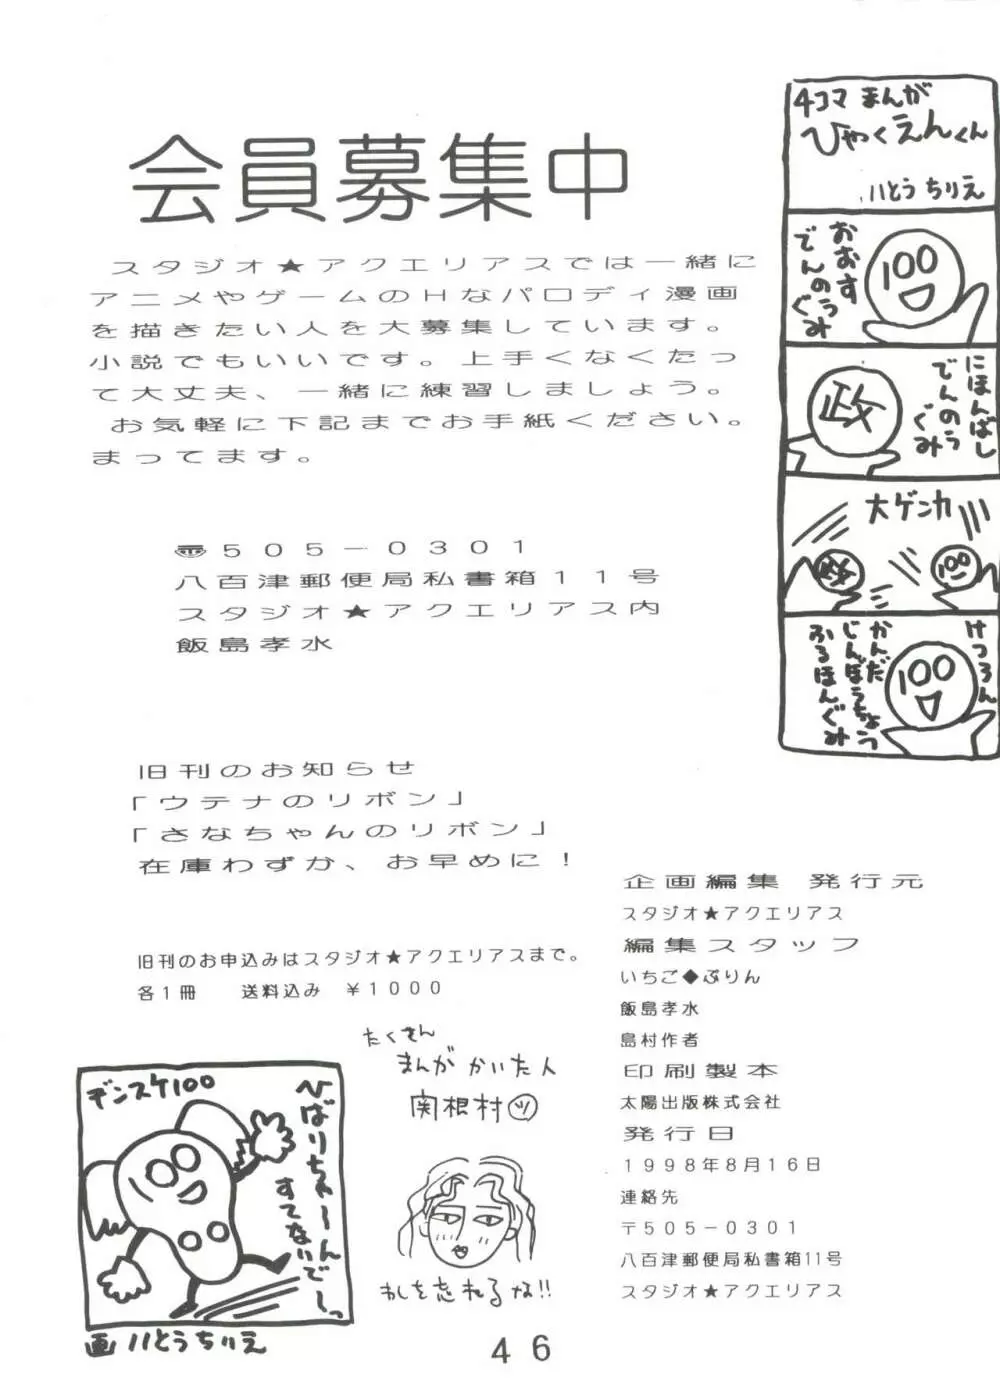 会員募集中
スタジオ★アクエリアスでは一緒に
アニメやゲームのHなパロディ漫画
を描きたい人を大募集しています。
小説でもいいです。上手くなくたっ
て大丈夫、一緒に練習しましょう。
お気軽に下記までお手紙ください。
まってます。
〠505−0301
八百津郵便局私書箱11号
スタジオ★アクエリアス内
飯島孝水
旧刊のお知らせ
「ウテナのリボン」
「さなちゃんのリボン」
在庫わずか、お早めに！
旧刊のお申込みはスタジオ★アクエリアスまで。
各1冊　送料込み　￥1000
4コマ まんが
ひゃくえんくん
いとうちりえ
おおす
でんのうぐみ
100
にほんばし
でんのうぐみ
政
大ゲンカ
政
100
けつろん
かんだ
じんぼうちょう
ふるほんぐみ
100
企画編集　発行元
スタジオ★アクエリアス
編集スタッフ
いちご◆ぷりん
飯島孝水
島村作者
印刷製本
太陽出版株式会社
発行日
1998年8月16日
連絡先
〒505−0301
八百津郵便局私書箱11号
スタジオ★アクエリアス
たくさん
まんが かいた人
関根村ツ
わしを忘れるな!!
デンスケ100
ひばりちゃーんすてないでーっ
画 いとうちりえ
46